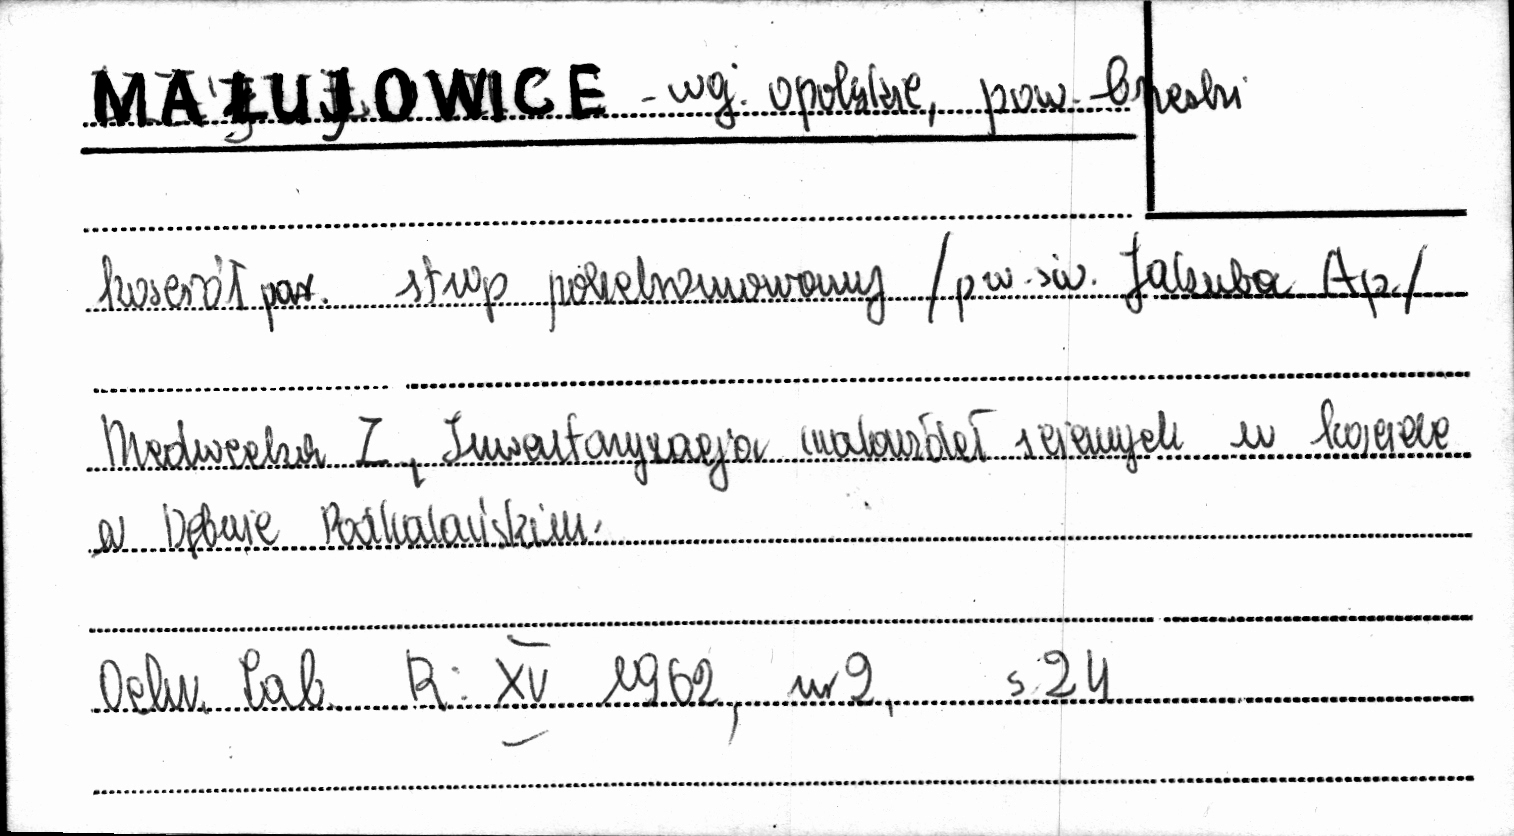 MAŁUJOWICE - woj. opolskie, pow. brzeski
kościół par. strop polichromowany /p.w. św. Jakuba Ap./
Medwecka Z, Inwentaryzacja malowideł ściennych w kościele
w Dębnie Podhalańskim.
Ochr. Zab. R: XV 1962, nr 2, s. 24